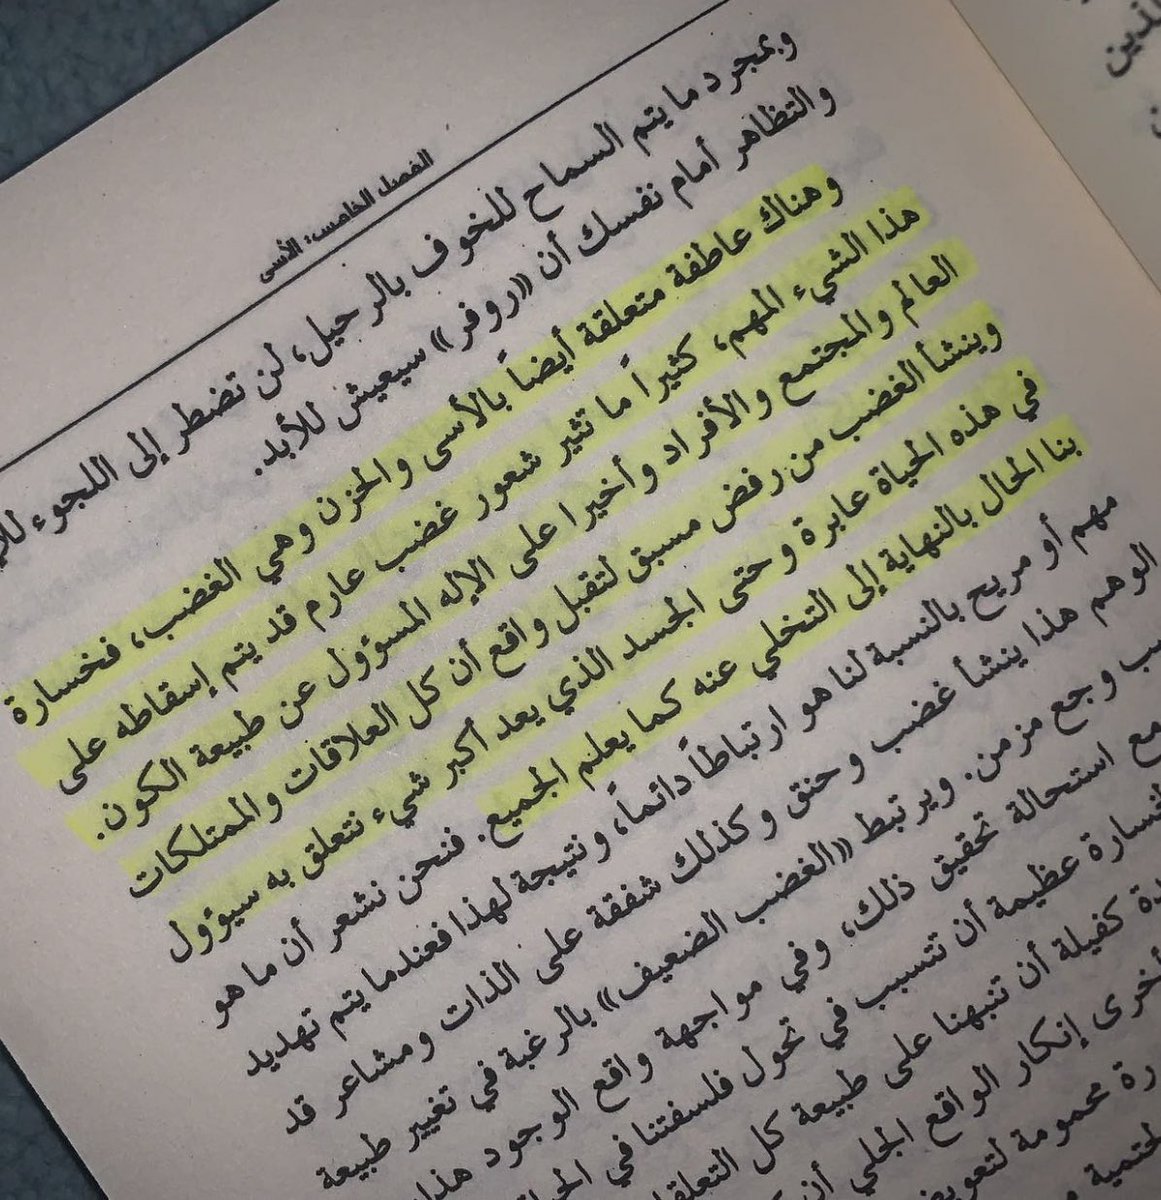 الفصل الخامس: الأسى
وبمجرد ما يتم السماح للخوف بالرحيل، لن تضطر إلى اللجوء
والتظاهر أمام نفسك أن «روفر» سيعيش للأبد.
وهناك عاطفة متعلقة أيضاً بالأسى والحزن وهي الغضب، فخسارة
هذا الشيء المهم، كثيراً ما تثير شعور غضب عارم قد يتم إسقاطه على
العالم والمجتمع والأفراد وأخيرا على الإله المسؤول عن طبيعة الكون.
وينشأ الغضب من رفض مسبق لتقبل واقع أن كل العلاقات والممتلكات
في هذه الحياة عابرة وحتى الجسد الذي يعد أكبر شيء نتعلق به سيؤول
بنا الحال بالنهاية إلى التخلي عنه كما يعلم الجميع. فنحن نشعر أن ما هو
مهم أو مريح بالنسبة لنا هو ارتباطاً دائماً، ونتيجة لهذا فعندما يتم تهديد
الوهم هذا ينشأ غضب وحنق وكذلك شفقة على الذات ومشاعر قد
وجع مزمن. ويرتبط «الغضب الضعيف» بالرغبة في تغيير طبيعة
مع استحالة تحقيق ذلك، وفي مواجهة واقع الوجود هذا
عظيمة أن تتسبب في تحول فلسفتنا في
كفيلة أن تنبهنا على طبيعة كل
أخرى إنكار الواقع الجلي
محمومة
الذين